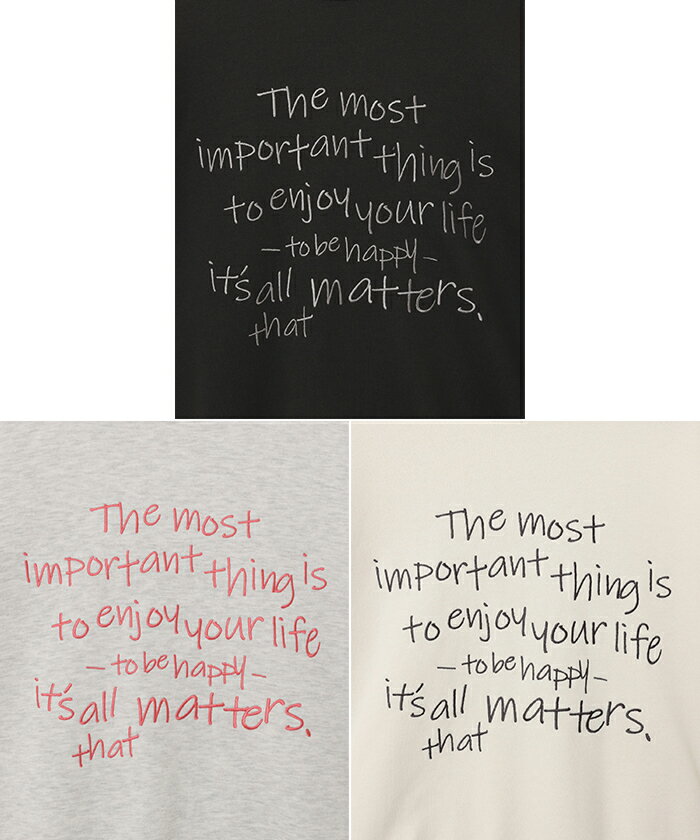 The most
important thing is
to enjoy your life
- to be happy -
it's all matters.
that
The most
important thing is
to enjoy your life
- to be happy -
it's all matters.
that
The most
important thing is
to enjoy your life
- to be happy -
it's all matters.
that